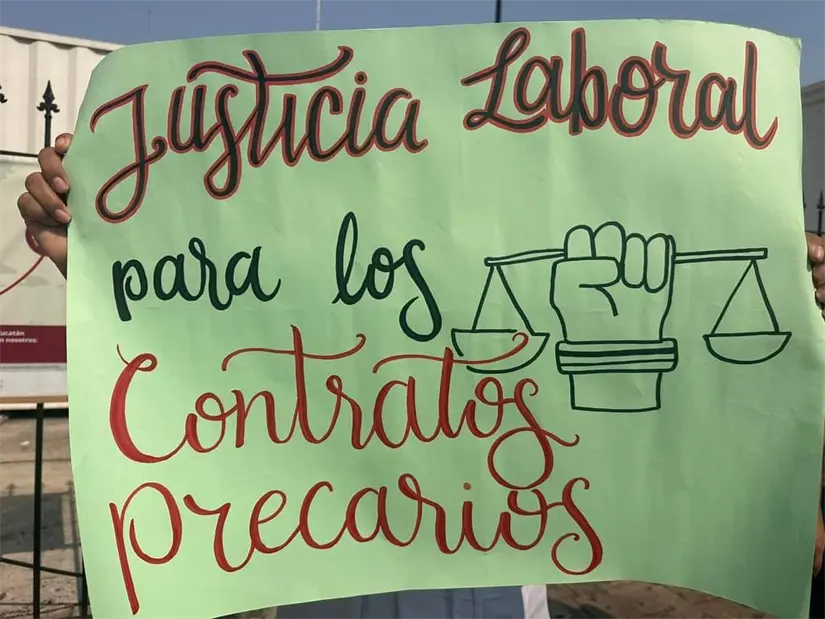 Justicia Laboral
para los
Contratos
precarios
ucatán